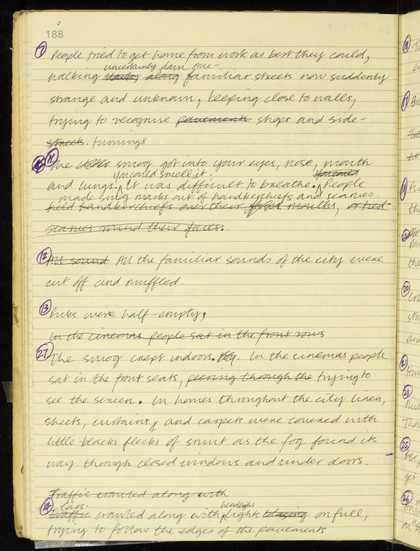 188
7 People tried to get home from work as best they could,
uncertainly down once-
walking slowly along familiar streets now suddenly
strange and unknown, keeping close to walls,
trying to recognise pavements shops and side-
streets. turnings
The smog got into your eyes, nose, mouth
You could smell it.
and lungs. It was difficult to breathe. People
made smog masks out of handkerchiefs and scarves
held handkerchiefs over their mouths, or tied
scarves round their faces.
12 All sound All the familiar sounds of the city were
cut off and muffled.
13 Pubs were half-empty,
In the cinemas people sat in the front rows
27 The smog crept indoors. In the cinemas people
sat in the front seats, peering through the trying to
see the screen. In homes throughout the city linen,
sheets, curtains, and carpets were covered with
little black flecks of smut as the fog found its
way through closed windows and under doors.
Traffic crawled along with
Cars headlights
Traffic crawled along with lights blazing on full,
trying to follow the edges of the pavements